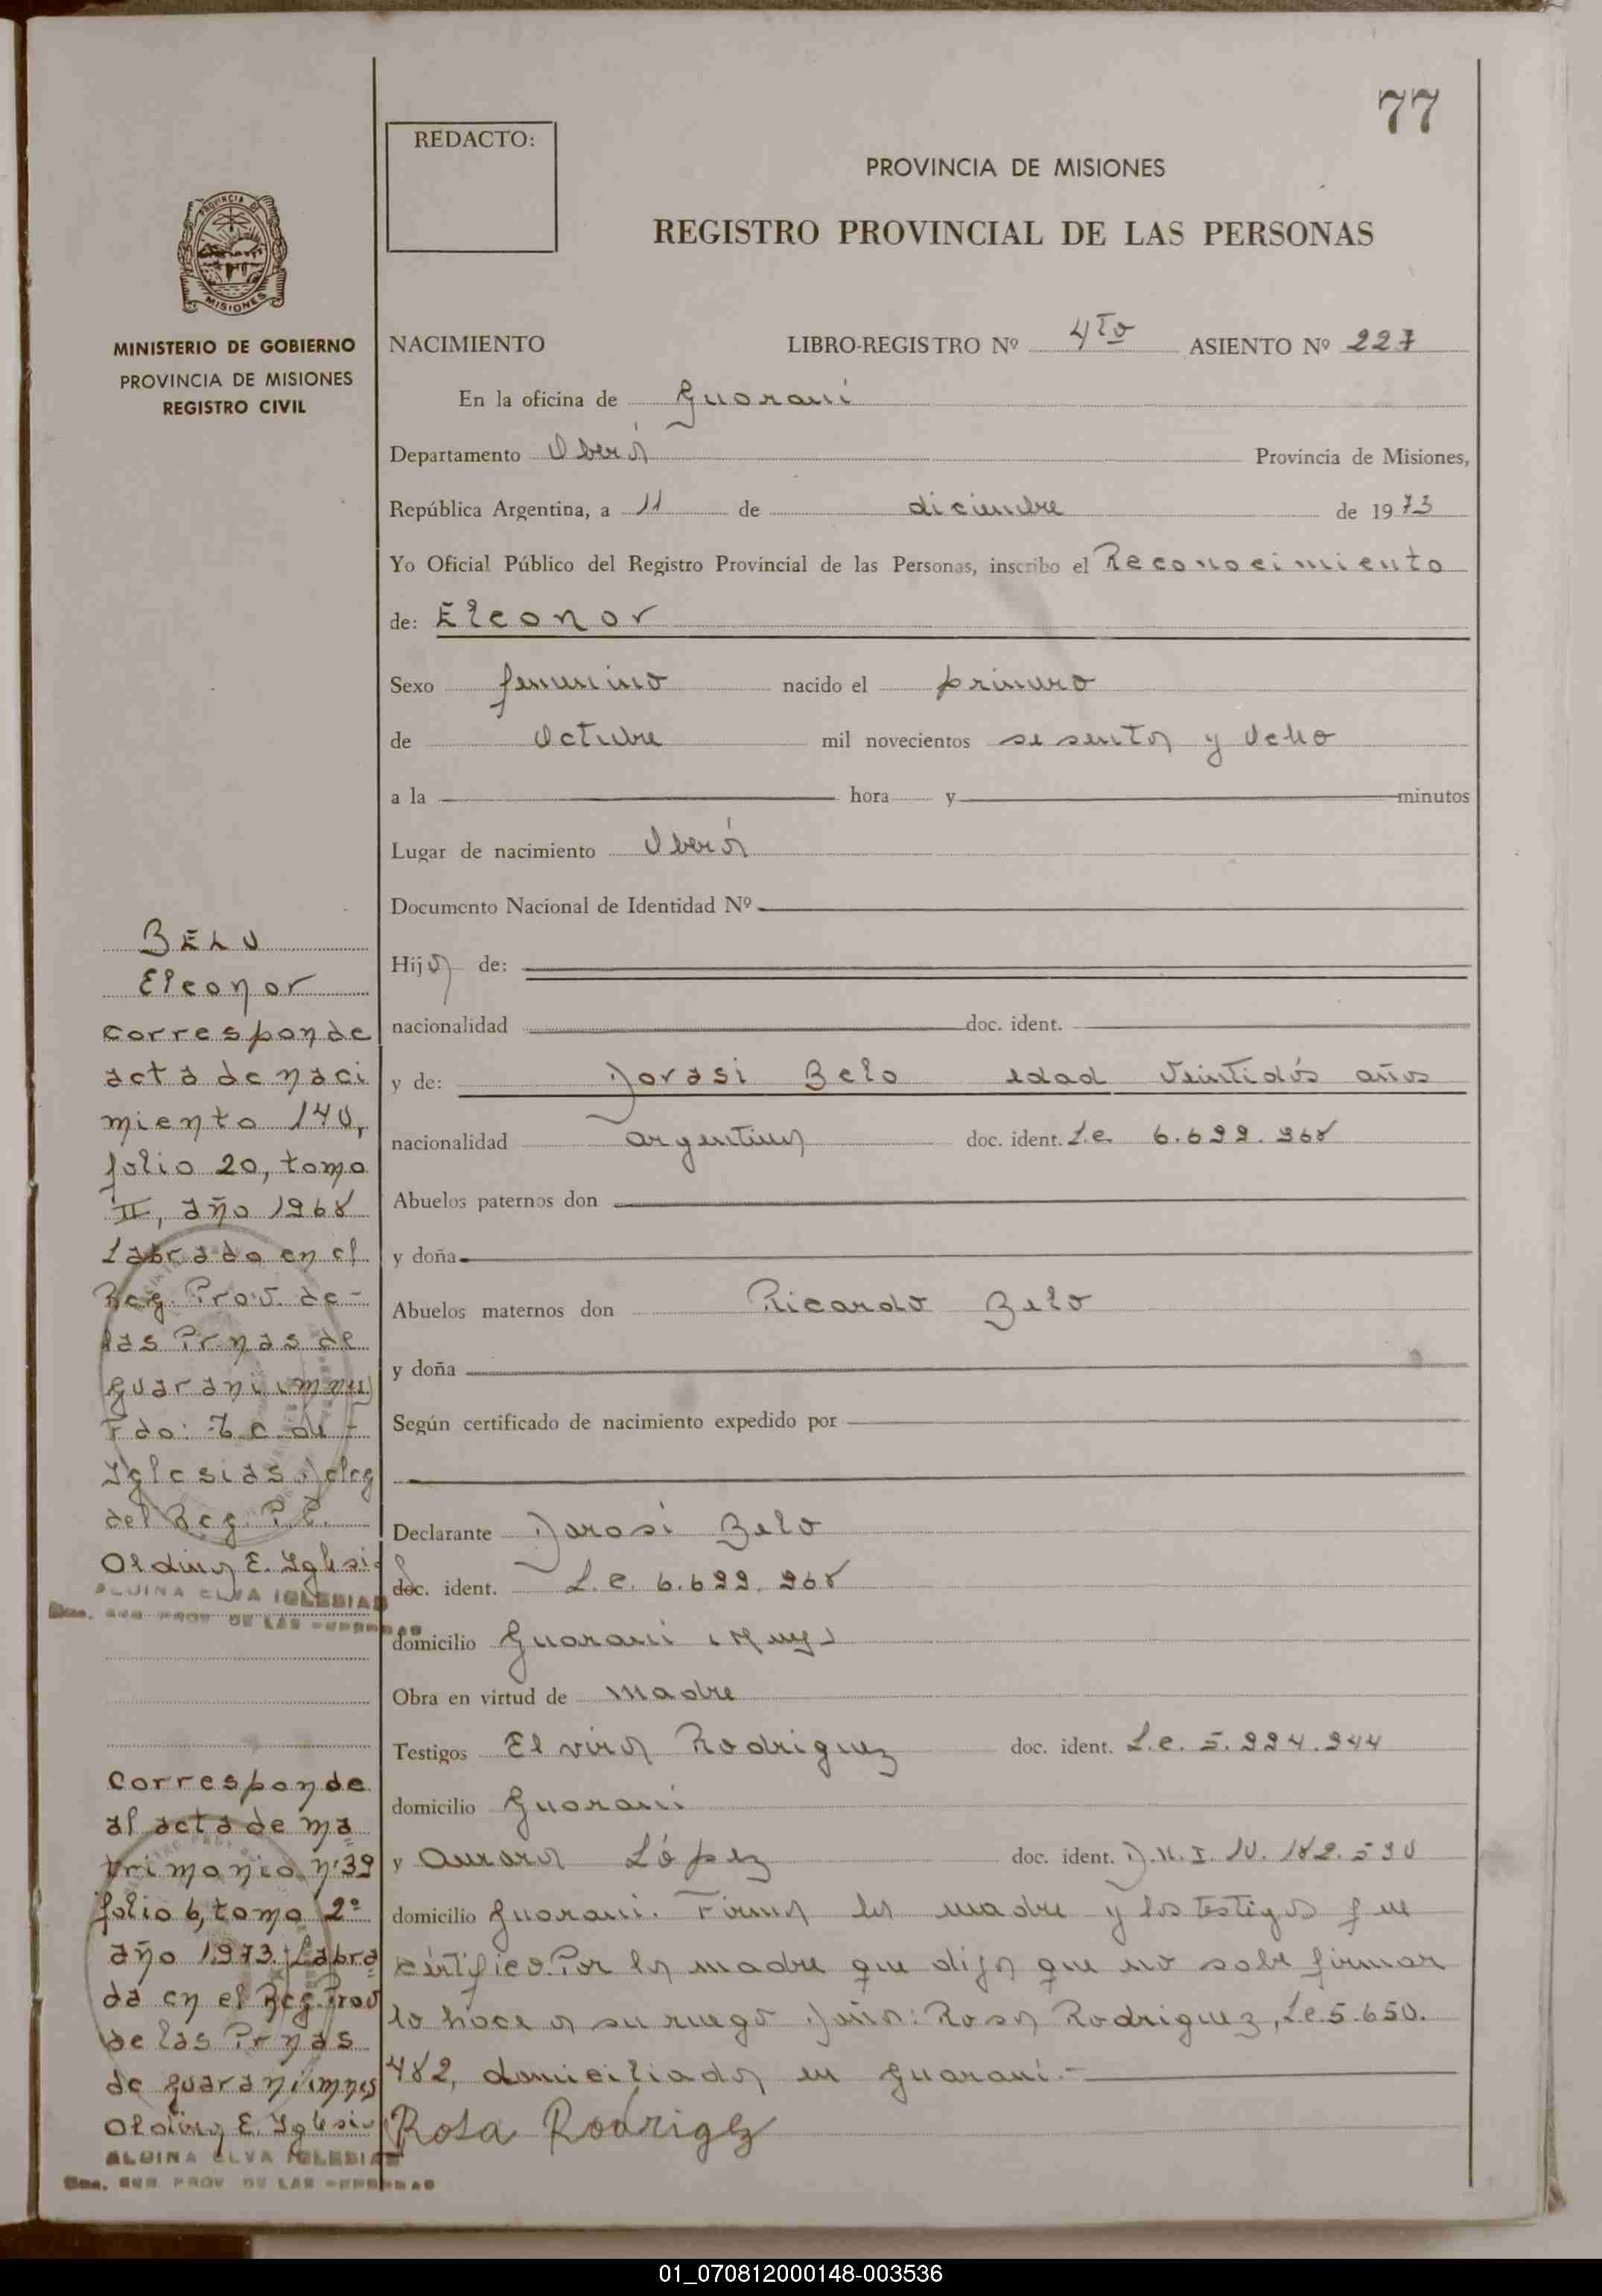 77
REDACTO:
PROVINCIA DE MISIONES
REGISTRO PROVINCIAL DE LAS PERSONAS
PROVINCIA DE
MISIONES
MINISTERIO DE GOBIERNO
PROVINCIA DE MISIONES
REGISTRO CIVIL
NACIMIENTO LIBRO-REGISTRO Nº 4to ASIENTO Nº 227
En la oficina de Guarani
Departamento Oberá Provincia de Misiones,
República Argentina, a 11 de diciembre de 1973
Yo Oficial Público del Registro Provincial de las Personas, inscribo el Reconocimiento
de: Eleonor
Sexo femenino nacido el primero
de Octubre mil novecientos sesenta y Ocho
a la hora y minutos
Lugar de nacimiento Oberá
Documento Nacional de Identidad Nº
Hija de:
nacionalidad doc. ident.
y de: Dorasi Belo edad Veintidós años
nacionalidad argentina doc. ident. L.C. 6.699.968
Abuelos paternos don
y doña
Abuelos maternos don Ricardo Belo
y doña
Según certificado de nacimiento expedido por
Declarante Darasi Belo
doc. ident. L.C. 6.699.968
domicilio Guarani (Mnes)
Obra en virtud de madre
Testigos Elvira Rodriguez doc. ident. L.C. 5.994.944
domicilio Guarani
y Aurora López doc. ident. D.N.I. 10.182.590
domicilio Guarani. Firma la madre y los testigos que
certifico. Por la madre que dija que no sabe firmar
lo hace a su ruego Doña: Rosa Rodriguez, L.C. 5.650.
482, domiciliada en Guarani.-
Rosa Rodrigez
BELO
Eleonor
corresponde
acta de naci
miento 140,
folio 20, tomo
II, año 1968
Labrado en el
Reg. Prov. de-
las Prnas de
Guarani (mnes)
Fdo: C. de
Iglesias Deleg
del Reg. P.P.
Aldina E. Iglesia
ALDINA ELVA IGLESIAS
REG PROV DE LAS PERSONAS
Corresponde
al acta de ma
trimonio nº 39
folio 6, tomo 2º
año 1973. Labra
da en el Reg. Prov
de las Prnas
de Guarani mnes
Aldina E. Iglesia
ALDINA ELVA IGLESIAS
REG PROV DE LAS PERSONAS
01_070812000148-003536